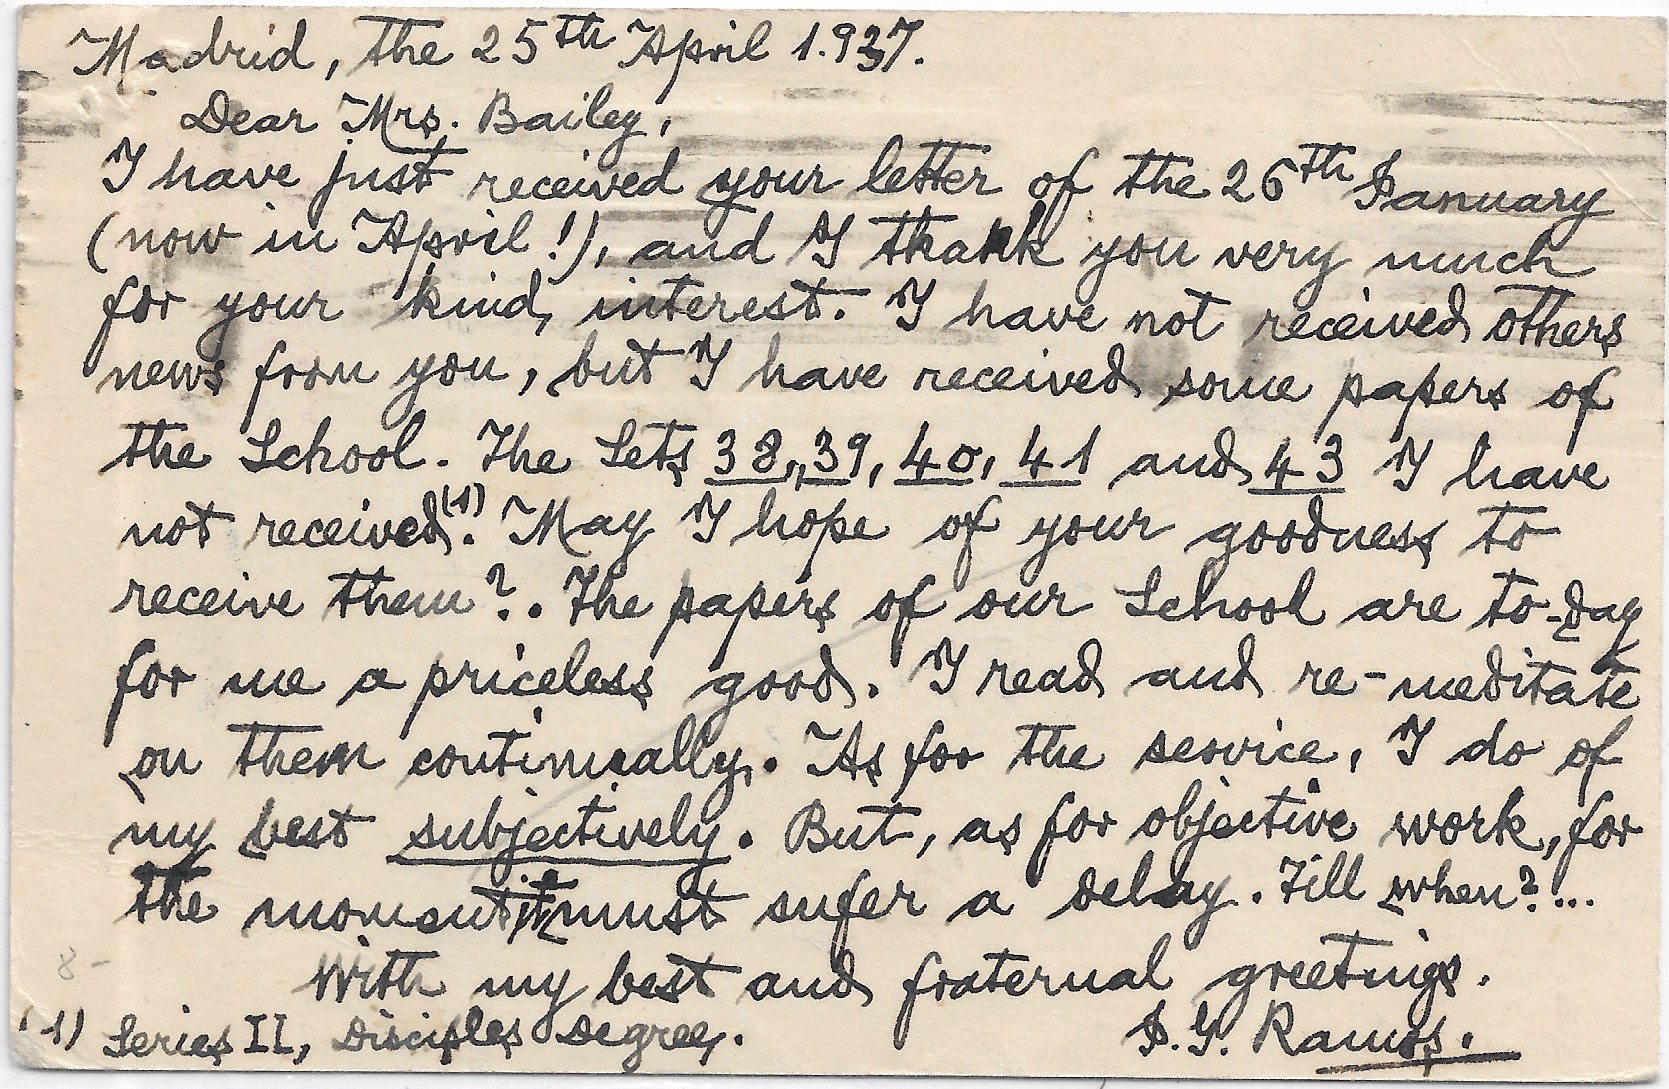 Madrid, the 25th April 1.937.
Dear Mrs. Bailey,
I have just received your letter of the 26th January
(now in April!), and I thank you very much
for your kind, interest. I have not received others
news from you, but I have received some papers of
the School. The Sets 38,, 39, 40, 41 and 43 I have
not received(1). May I hope of your goodness to
receive them?. The papers of our School are to-day
for me a priceless good. I read and re-meditate
on them continually. As for the service, I do of
my best subjectively. But, as for objective work, for
the moment it must sufer a delay. Till when?...
With my best and fraternal greetings.
8-
(1) Series II, Disciples Degree. 
Ramos.